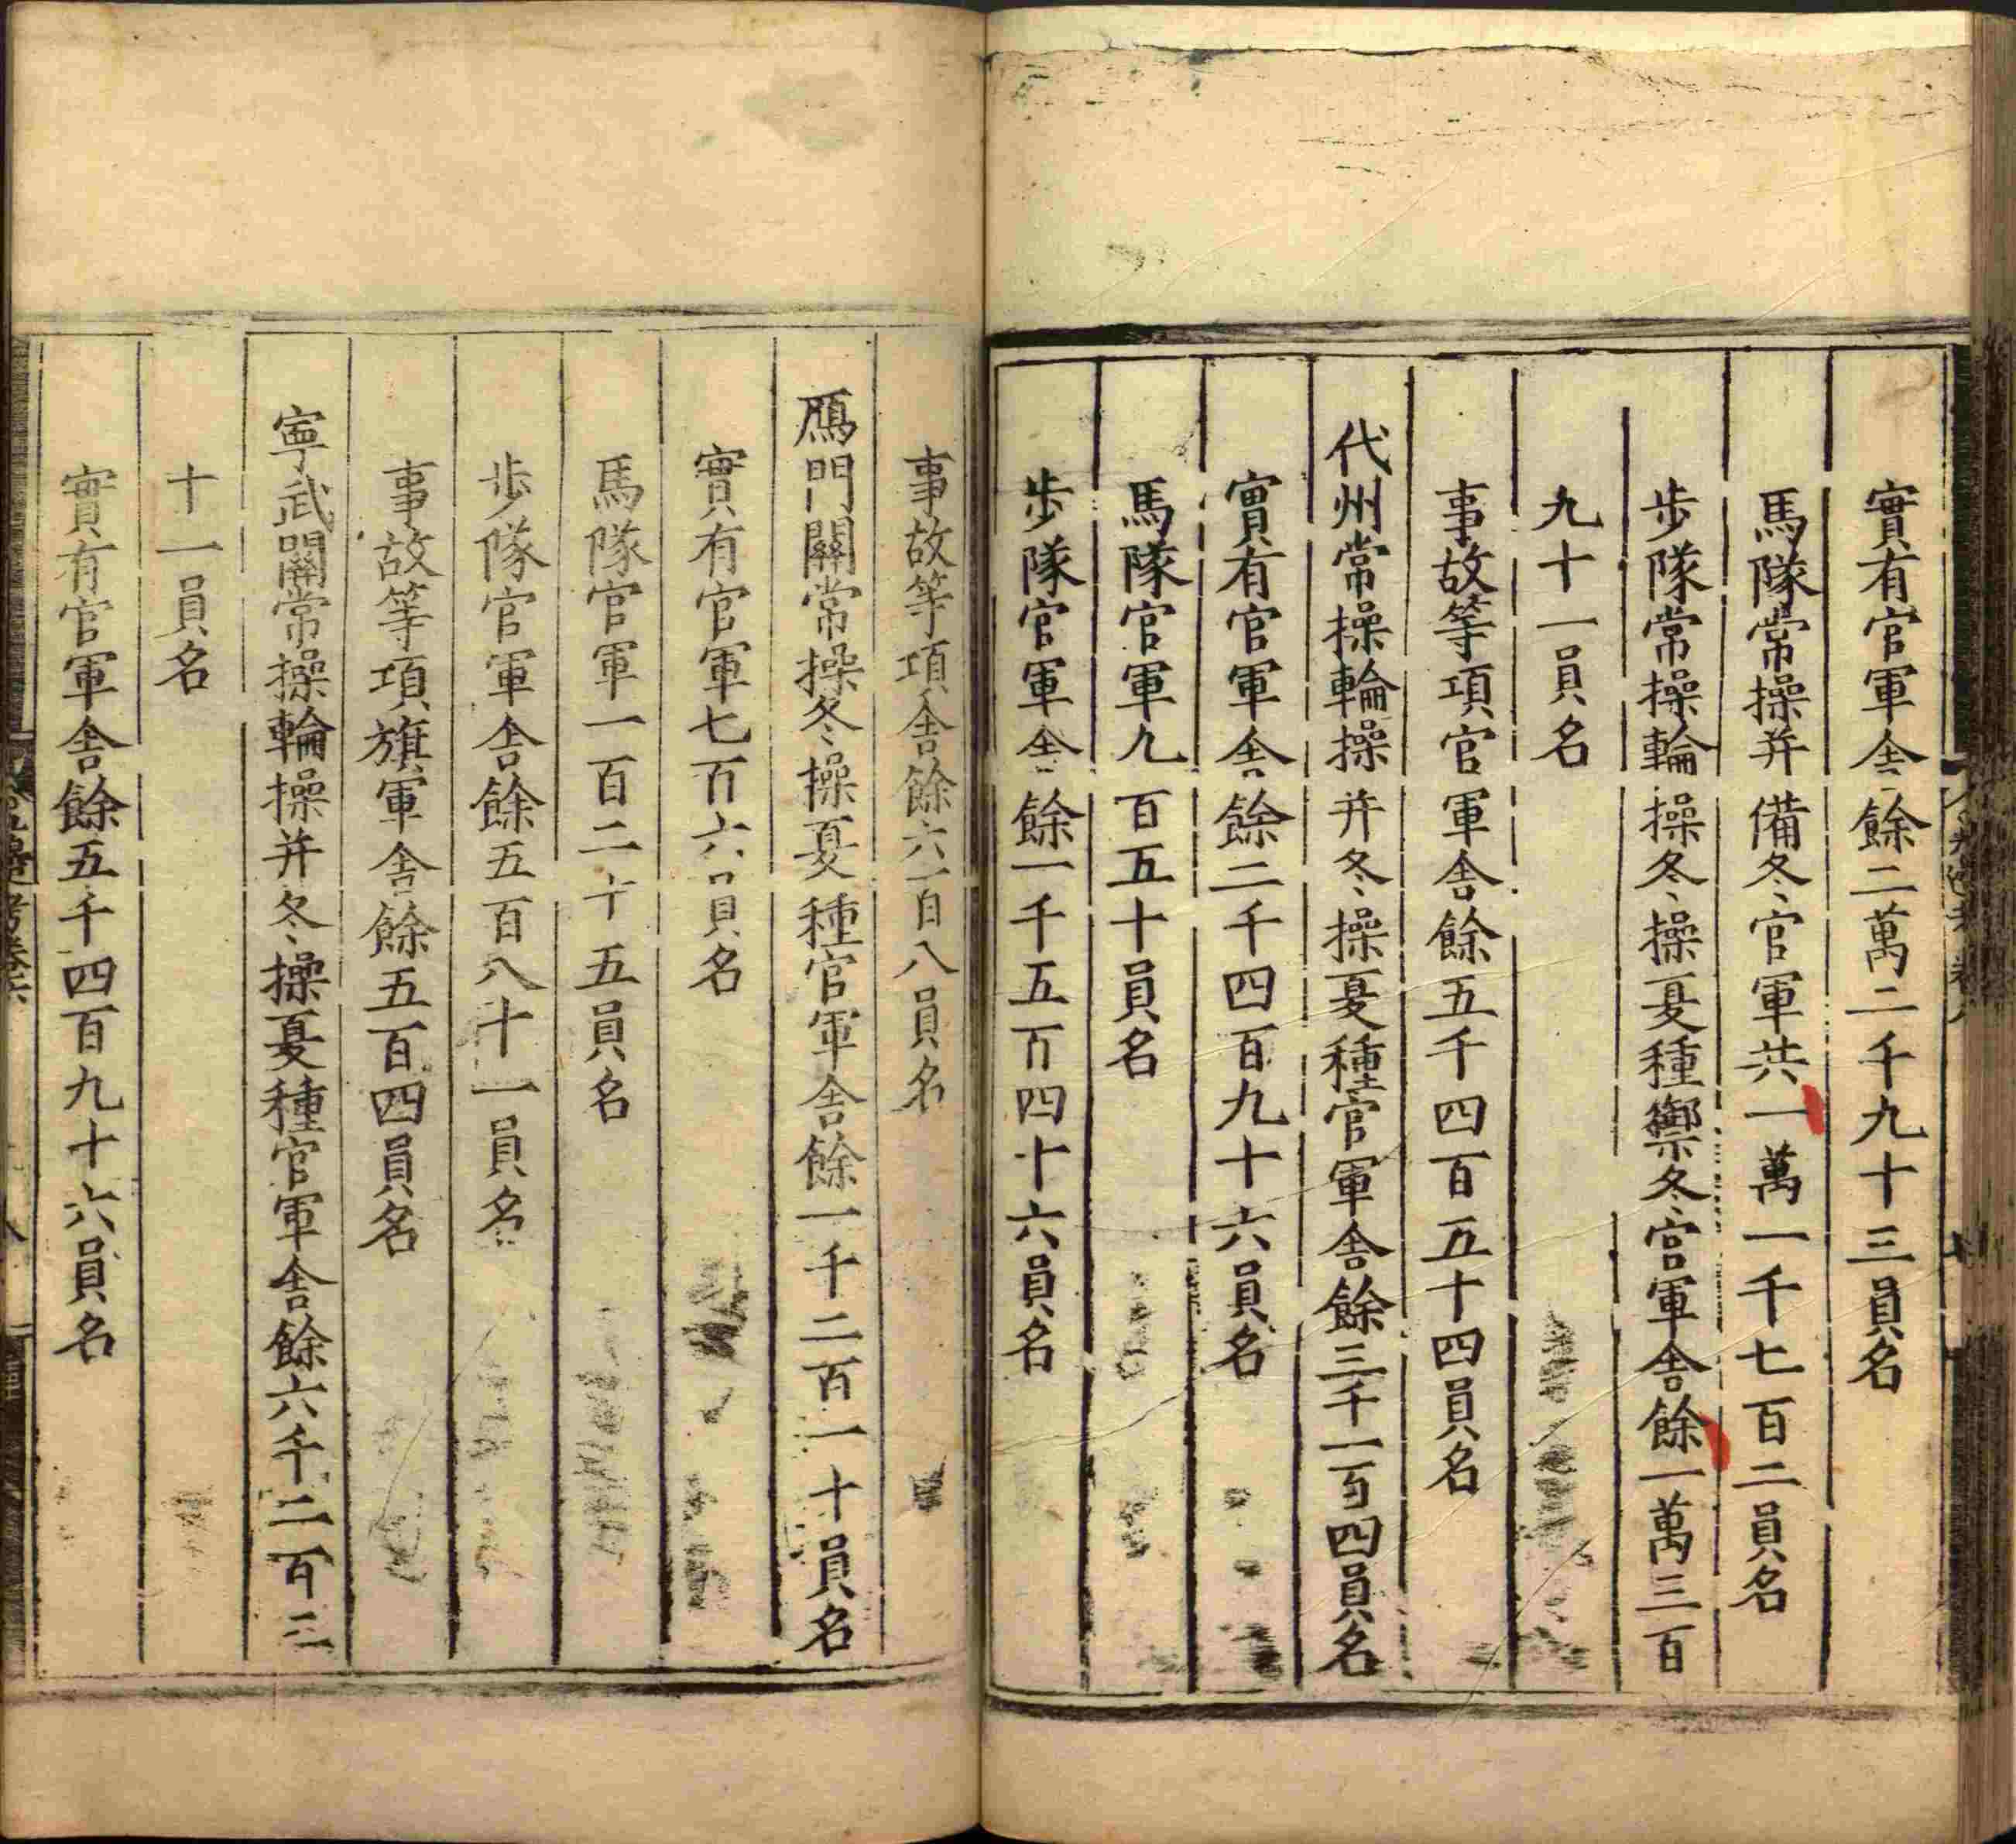 實有官軍舎餘二萬二千九十三員名
馬隊常操并備冬官軍共一萬一千七百二員名
步隊常操輪操冬操夏種禦冬官軍舎餘一萬三百
九十一員名
事故等項官軍舎餘五千四百五十四員名
代州常操輪操并冬操夏種官軍舎餘三千一百四員名
實有官軍舎餘二千四百九十六員名
馬隊官軍九百五十員名
步隊官軍舎餘一千五百四十六員名
事故等項舎餘六百八員名
鴈門關常操冬操夏種官軍舎餘一千二百一十員名
實有官軍七百六員名
馬隊官軍一百二十五員名
步隊官軍舎餘五百八十一員名
事故等項旗軍舎餘五百四員名
寧武關常操輪操并冬操夏種官軍舎餘六千二百三
十一員名
實有官軍舎餘五千四百九十六員名